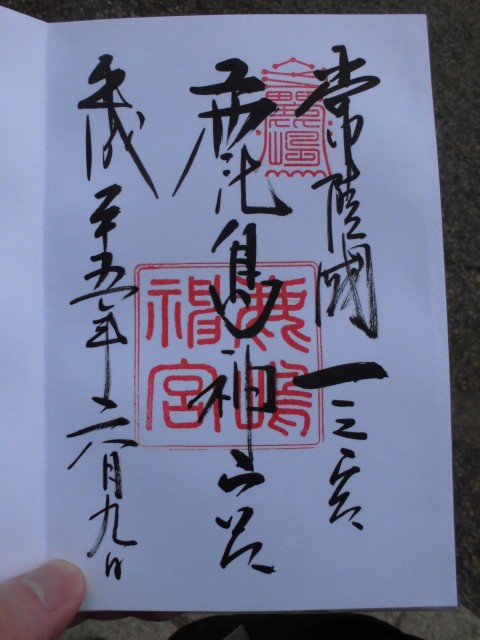 常陸國一之宮
鹿島神宮
平成二十五年六月九日
鹿嶋
神宮